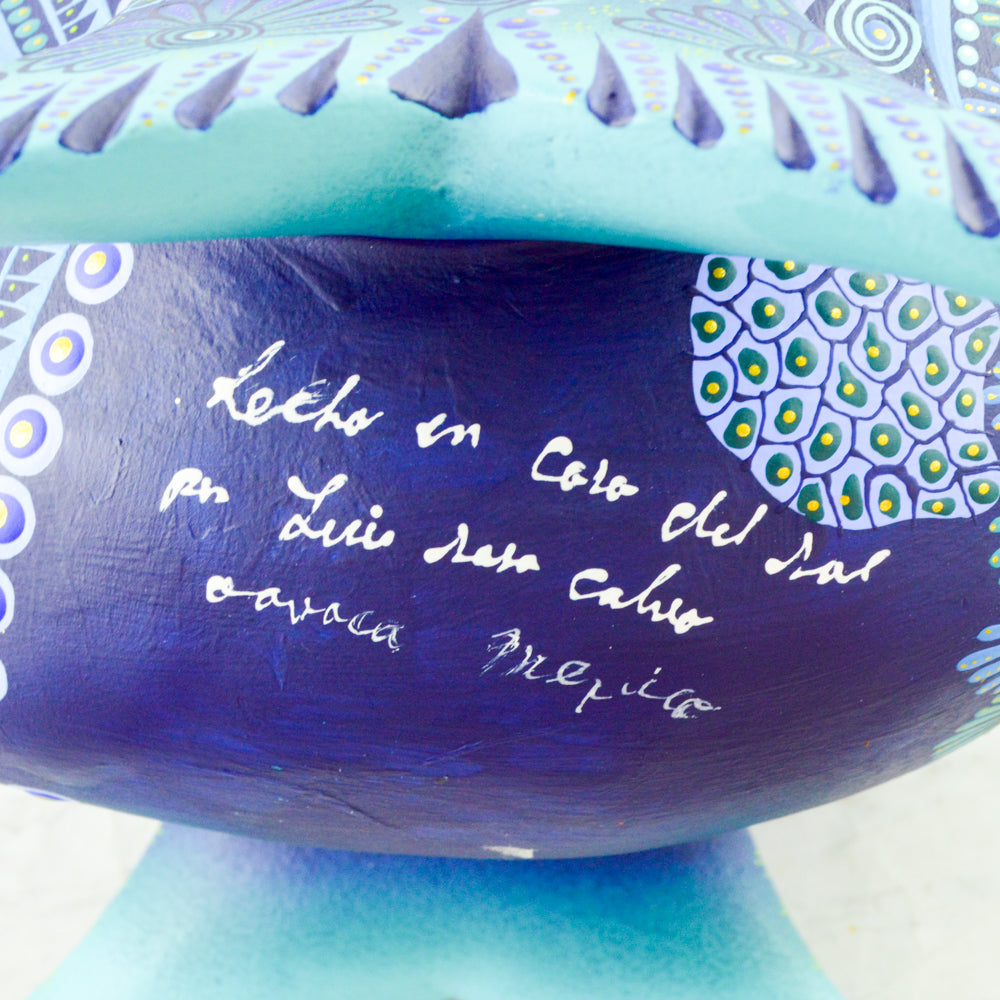 Hecho en Casa del Sar
por Luis Sosa Calvo
oaxaca Mexico